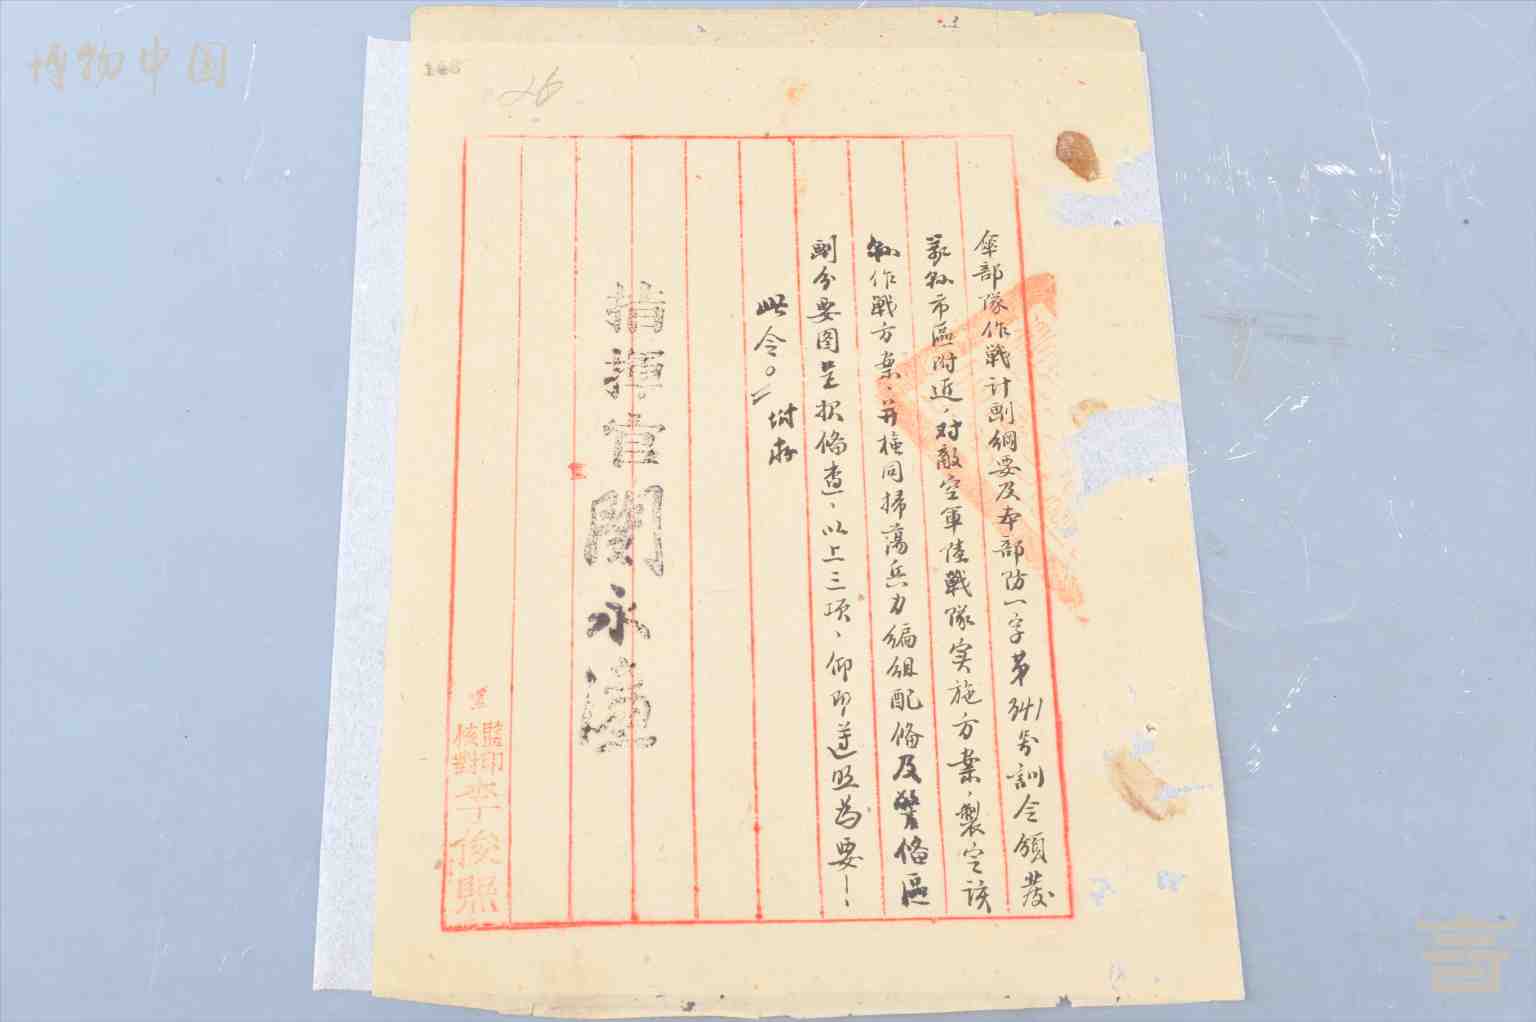 博物中国
146
26
傘部隊作戰計劃綱要及本部防一字第341号訓令頒發
市區附近、对敵空軍陸戰隊实施方案、製定該
作戰方案、并檢同掃蕩兵力編組配俻及警俻區
劃分要图呈报俻查、以上三項、仰即遵照為要！
此令。
附
指揮官閔永濂
監印
核對
李俊熙